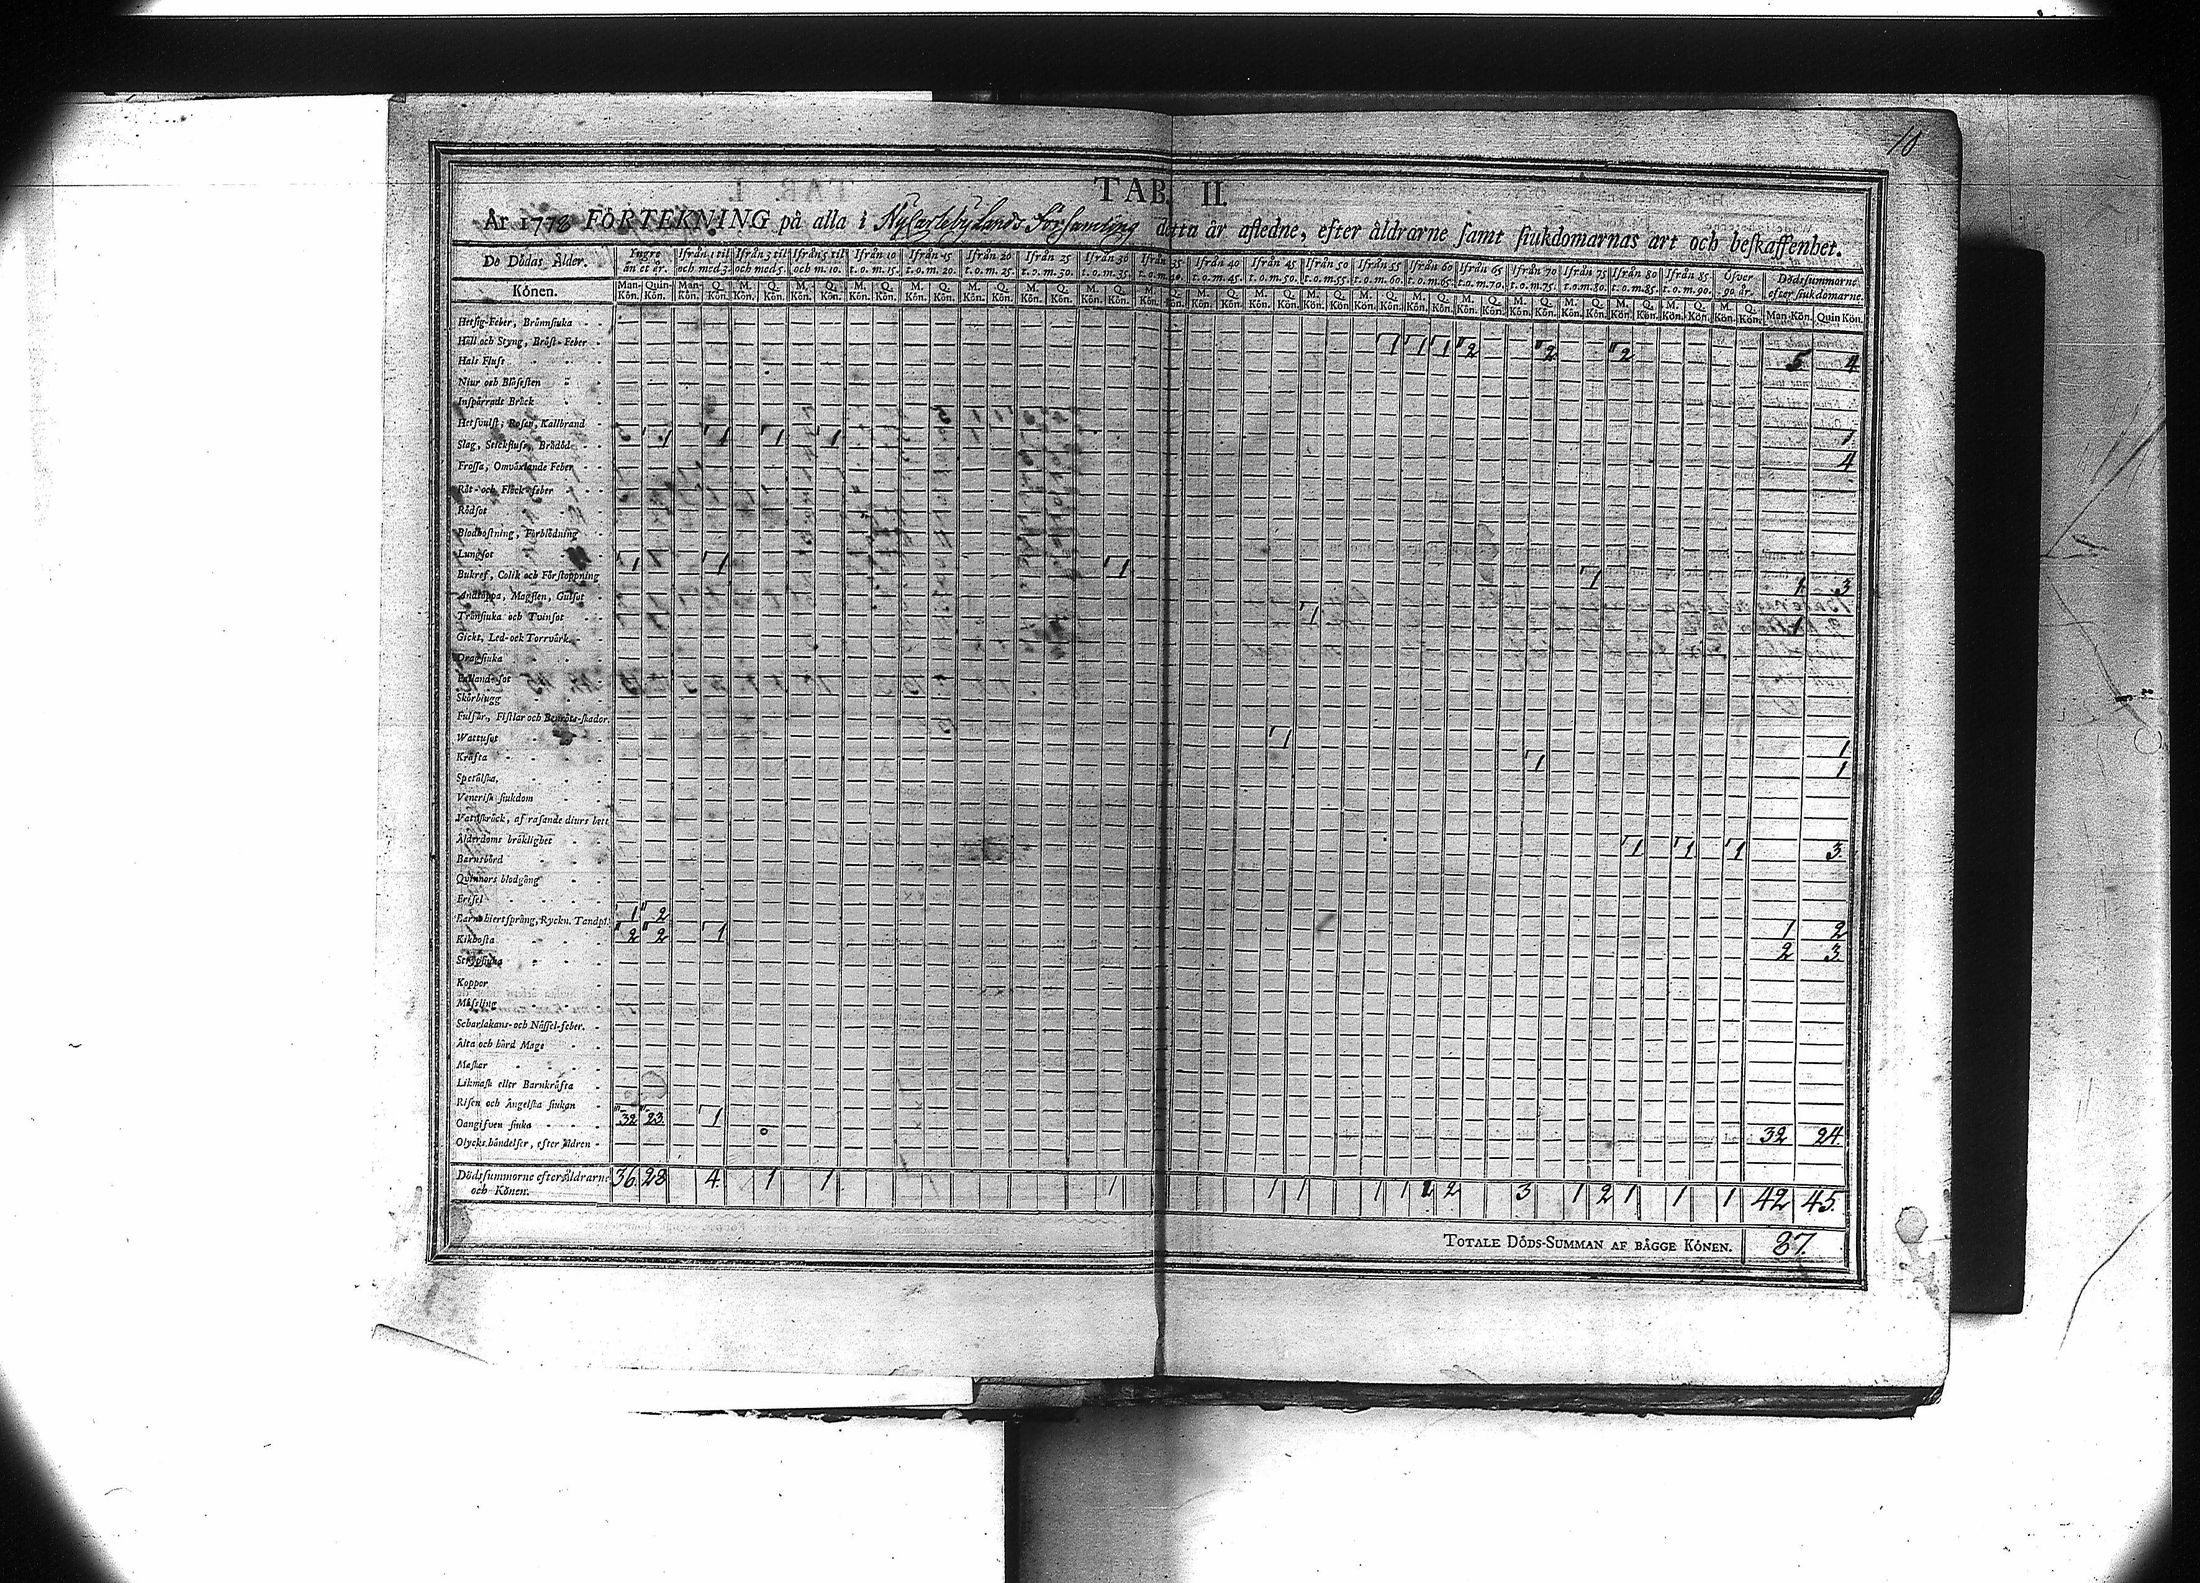 18
TAB. II.
År 1778 FÖRTEKNING på alla i Nycarleby Lands Församling detta år afledne, efter åldrarne samt siukdomarnas art och beskaffenhet.
De Dödas Ålder. Yngre än et år. Ifrån 1 til och med 3. Ifrån 3 til och med 5. Ifrån 5 til och m. 10. Ifrån 10 t.o.m. 15. Ifrån 15 t.o.m. 20. Ifrån 20 t.o.m. 25. Ifrån 25 t.o.m. 30. Ifrån 30 t.o.m. 35. Ifrån 35 t.o.m. 40. Ifrån 40 t.o.m. 45. Ifrån 45 t.o.m. 50. Ifrån 50 t.o.m. 55. Ifrån 55 t.o.m. 60. Ifrån 60 t.o.m. 65. Ifrån 65 t.o.m. 70. Ifrån 70 t.o.m. 75. Ifrån 75 t.o.m. 80. Ifrån 80 t.o.m. 85. Ifrån 85 t.o.m. 90. Öfver 90 år. Dödssummorne efter siukdomarne.
Könen. Man-Kön. Quin-Kön. Man-Kön. Q. Kön. M. Kön. Q. Kön. M. Kön. Q. Kön. M. Kön. Q. Kön. M. Kön. Q. Kön. M. Kön. Q. Kön. M. Kön. Q. Kön. M. Kön. Q. Kön. M. Kön. Q. Kön. M. Kön. Q. Kön. M. Kön. Q. Kön. M. Kön. Q. Kön. M. Kön. Q. Kön. M. Kön. Q. Kön. M. Kön. Q. Kön. M. Kön. Q. Kön. M. Kön. Q. Kön. M. Kön. Q. Kön. M. Kön. Q. Kön. M. Kön. Q. Kön. Man Kön. Quin Kön.
Hetsig-Feber, Brännsiuka
Håll och Styng, Bröst-Feber 1 1 1 2 2 2 5 4
Hals Fluss
Niur och Blåsesten
Inspärradt Bråck
Hetsvulst, Rosen, Kallbrand 1
Slag, Stickflufs, Brådöd 1 1 1 1 4
Frossa, Omväxlande Feber
Röt- och Fläck-feber
Rödsot
Blodhostning, Förblödning
Lungsot
Bukref, Colik och Förstoppning 1 1 1 1 1 3
Andtäppa, Magsten, Gulsot
Trånsiuka och Tvinsot 1 1
Gickt, Led-ock Torrvärk
Dragsiuka
Falland-sot
Skörbiugg
Fulsår, Fistlar och Benröts-skador
Wattusot 1 1
Kräfta 1 1
Spetälska
Venerisk siukdom
Vattuskräck, af rasande diurs bett
Ålderdoms bräklighet 1 1 1 3
Barnsbörd
Quinnors blodgång
Eriſel
Barnahiertsprång, Ryckn. Tandpl. 1 2 1 2
Kikhosta 2 2 1 2 3
Strypsiuka
Koppor
Mässling
Scharlakans- och Nässel-feber
Älta och hård Mage
Maskar
Likmask eller Barnkräfta
Risen och Ängelska siukan
Oangifven siuka 32 23 1 32 24
Olycks händelser, efter åldren
Dödssummorne efter Åldrarne 36 28 4 1 1 1 1 1 1 1 1 2 3 1 2 1 1 1 42 45
och Könen.
TOTALE DÖDS-SUMMAN AF BÄGGE KÖNEN. 87.